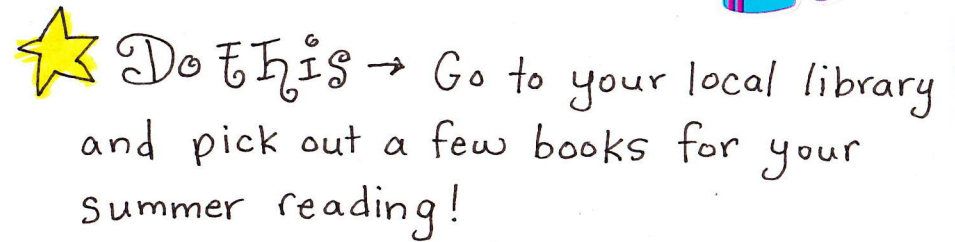 Do this → Go to your local library
and pick out a few books for your
summer reading!